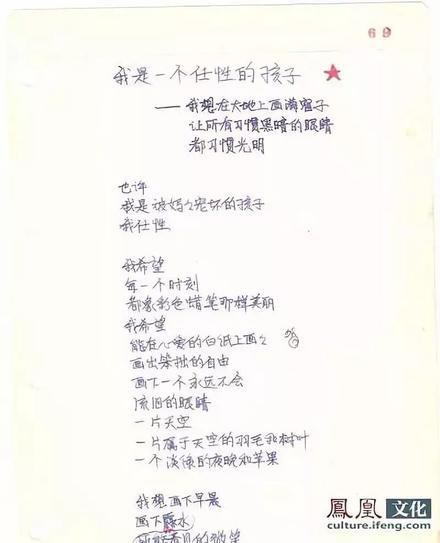 69
我是一个任性的孩子
——我想在大地上画满窗子
让所有习惯黑暗的眼睛
都习惯光明
也许
我是被妈々宠坏的孩子
我任性
我希望
每一个时刻
都象彩色蜡笔那样美丽
我希望
能在心爱的白纸上画々
画出笨拙的自由
画下一个永远不会
流泪的眼睛
一片天空
一片属于天空的羽毛和树叶
一个淡绿的夜晚和苹果
我想画下早晨
画下露水
所能看见的微笑
鳳凰文化
culture.ifeng.com